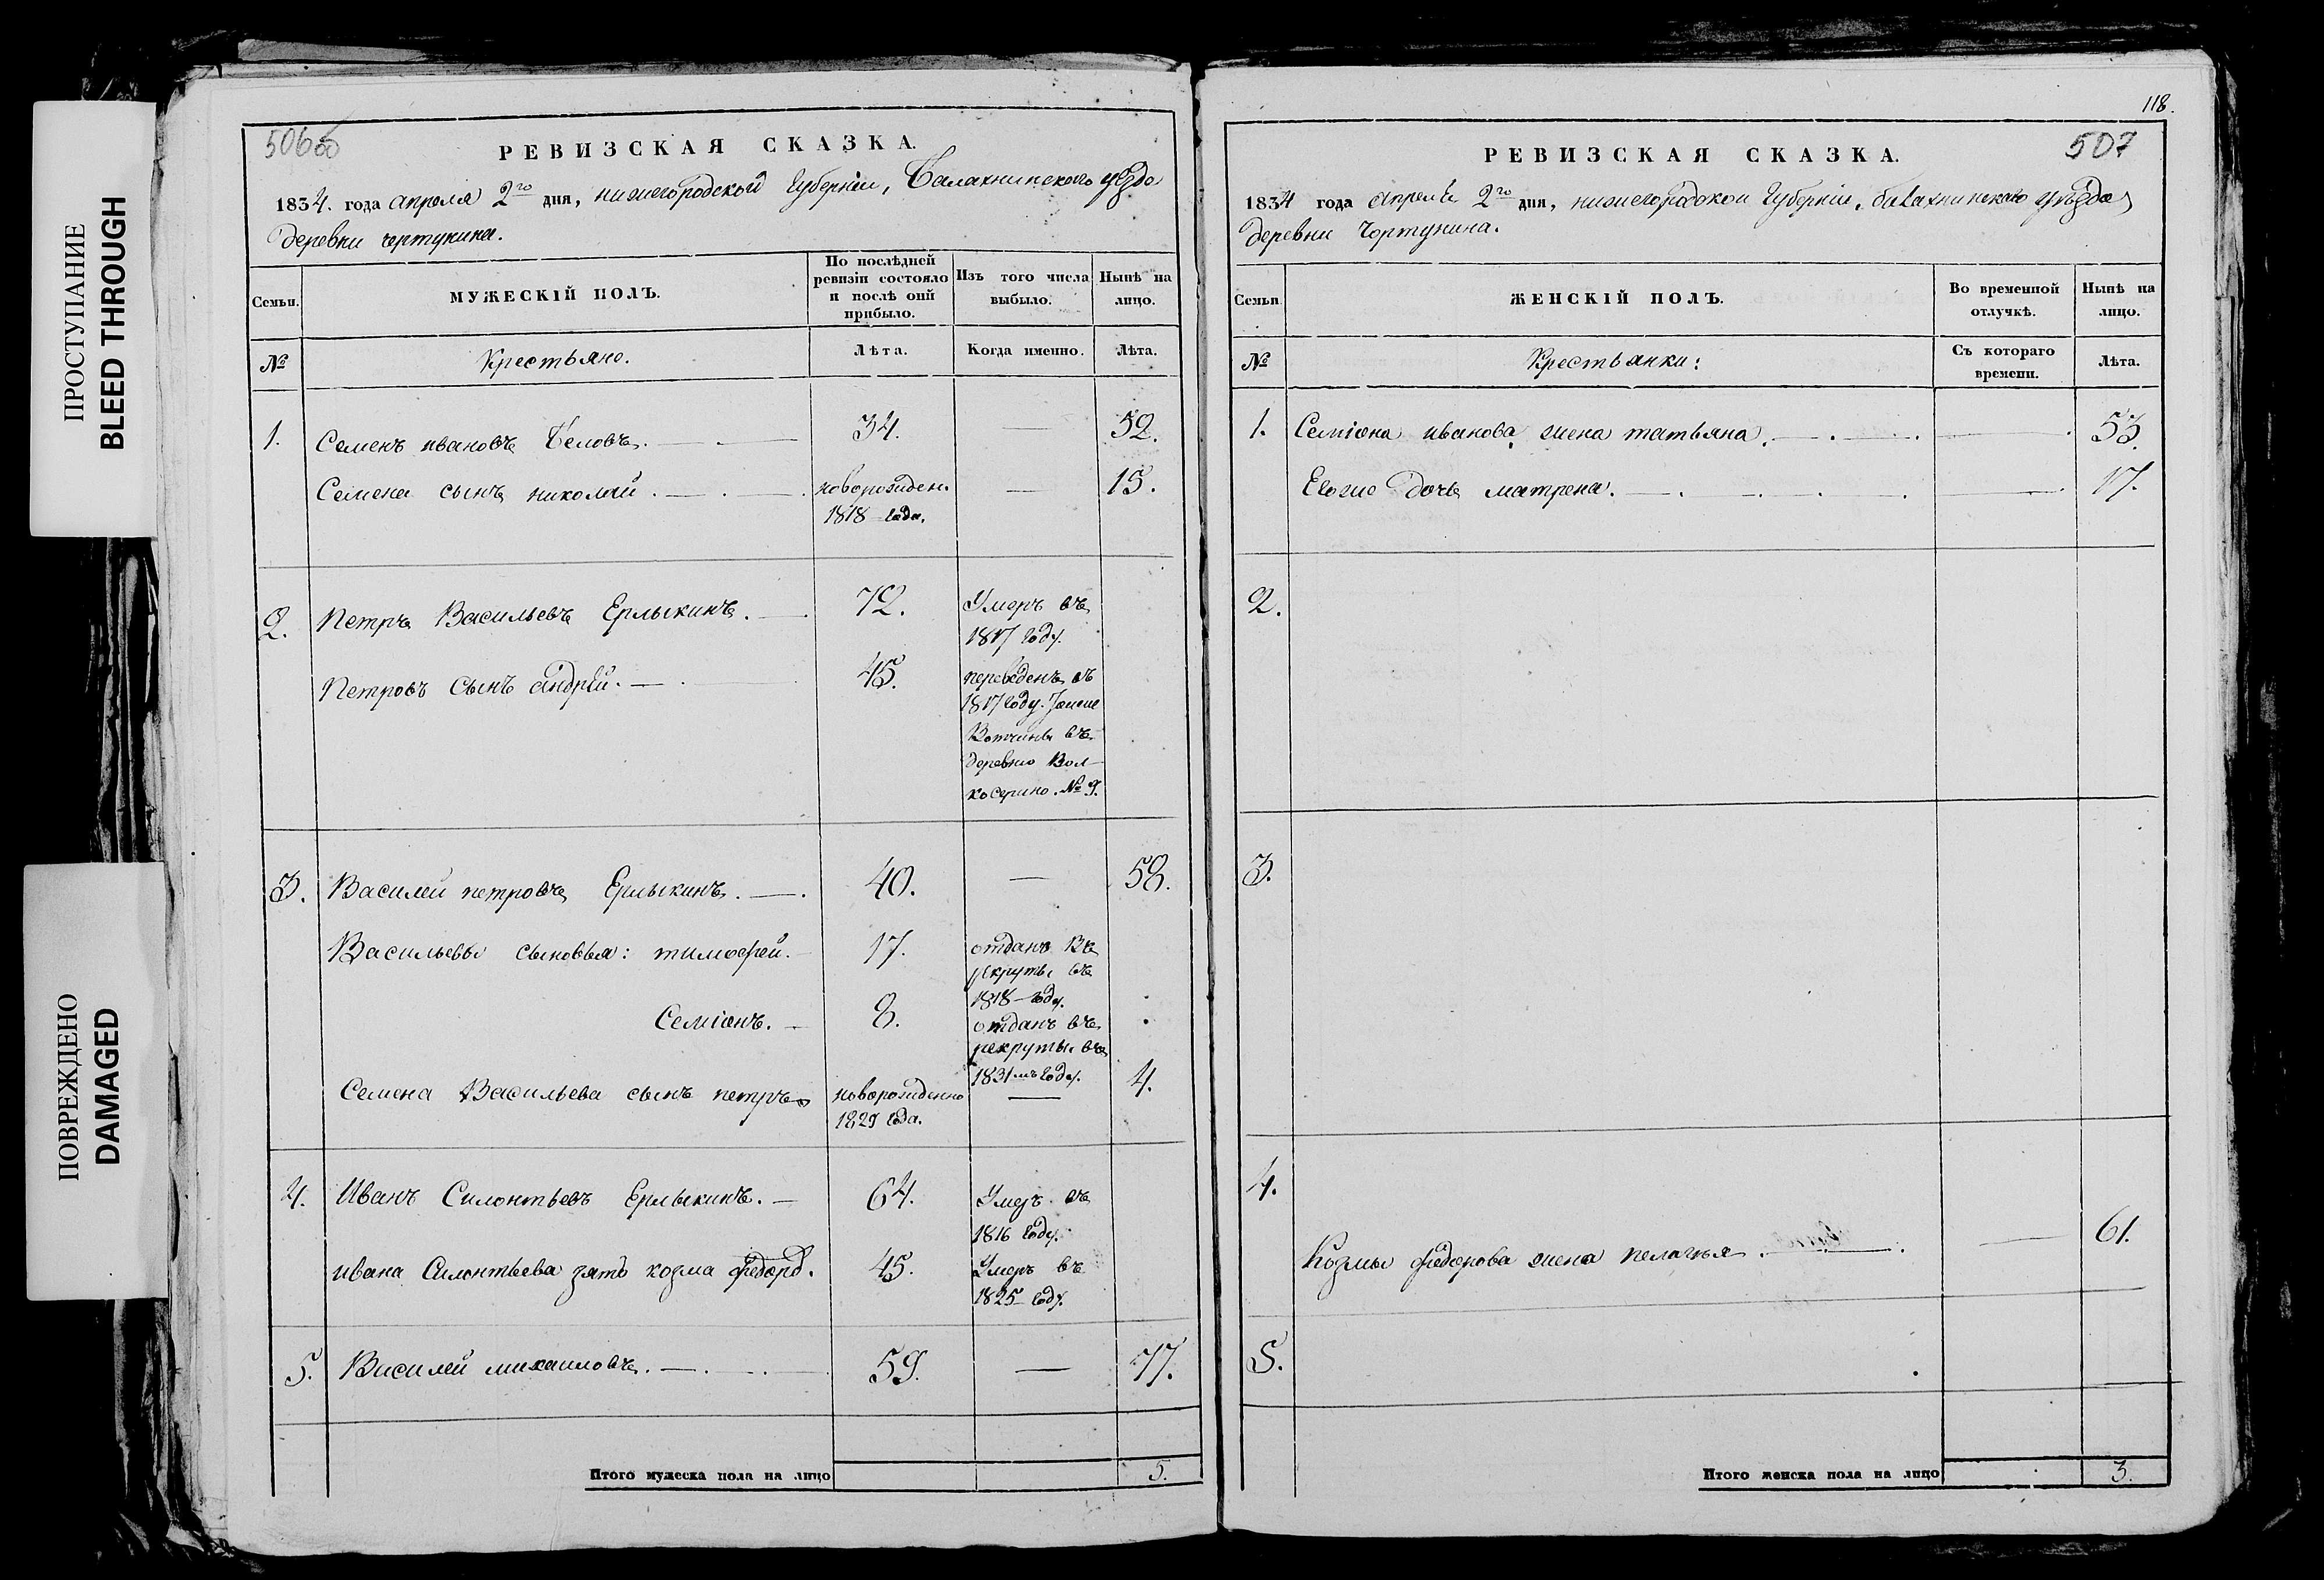 ПРОСТУПАНИЕ
BLEED THROUGH
ПОВРЕЖДЕНО
DAMAGED
506
РЕВИЗСКАЯ СКАЗКА.
1834. года апреля 2го дня, нижегородской губерніи, Балахнинскаго уезда
деревни чертунина.
Семьи.
МУЖЕСКІЙ ПОЛЪ.
По послѣдней ревизіи состояло и послѣ оной прибыло.
Изъ того числа выбыло.
Нынѣ на лицо.
№
Крестьяне.
Лѣта.
Когда именно.
Лѣта.
1. Семенъ ивановъ Беловъ. 34. — 52.
Семена сынъ николай. новорожден. — 15.
1818 года.
2. Петръ Васильевъ Ерлыкинъ. 72. Умеръ въ
1817 году.
Петровъ сынъ андрей. 45. переведенъ въ
1817 году.
Вотчины въ
деревню Вол-
косерино. № 9.
3. Василей петровъ Ерлыкинъ. 40. — 58.
Васильевы сыновья: тимофей. 17. отданъ въ
рекруты въ
1818 году.
Семіонъ. 8. отданъ въ
рекруты въ
1831мъ году.
Семена Васильева сынъ петръ новорожденно — 4.
1829 года.
4. Иванъ Силонтьевъ Ерлыкинъ. 64. Умеръ въ
1816 году.
ивана Силонтьева зять козма федоро. 45. Умеръ въ
1825 году.
5. Василей михаиловъ. 59. — 77.
Итого мужеска пола на лицо 5.
118.
507
РЕВИЗСКАЯ СКАЗКА.
1834 года апреля 2го дня, нижегородской губерніи, балахнинскаго уѣзда
деревни Чортунина.
Семьи.
ЖЕНСКІЙ ПОЛЪ.
Во временной отлучкѣ.
Нынѣ на лицо.
№
Крестьянки:
Съ котораго времени.
Лѣта.
1. Семіона иванова жена татьяна. — 53.
Евоже дочь матрена. — 17.
2.
3.
4.
Козмы федорова жена пелагья. — 61.
5.
Итого женска пола на лицо 3.